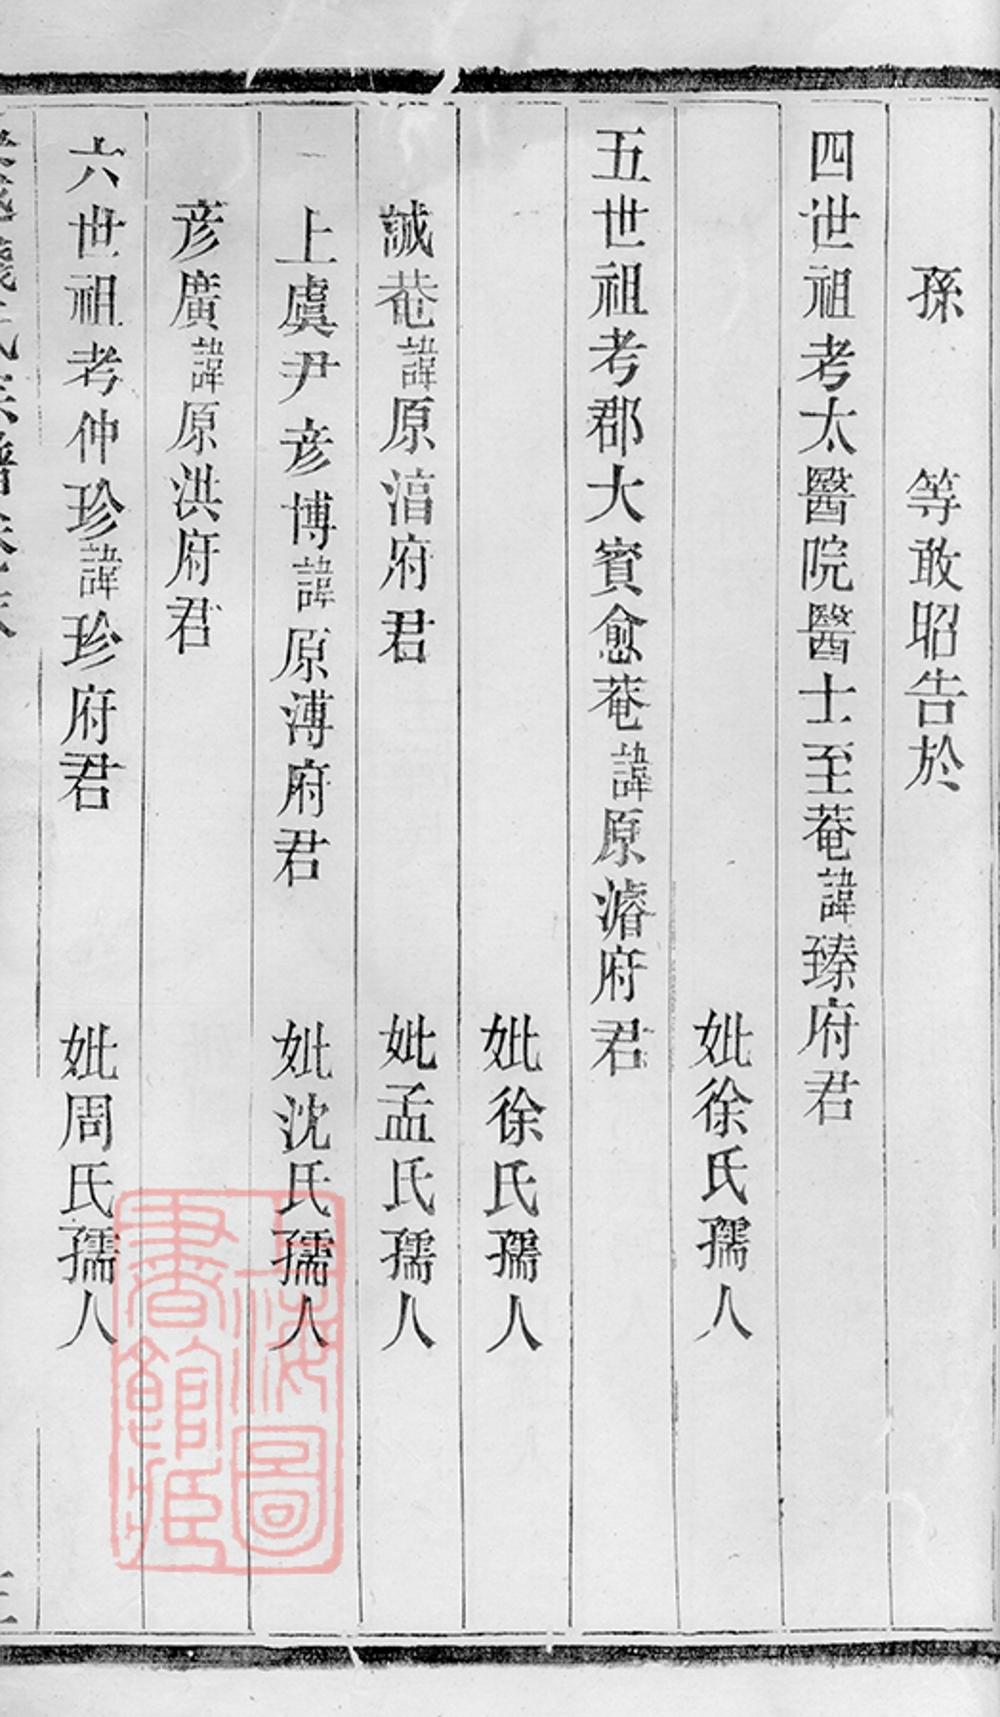 孫 等敢昭告於
四世祖考太醫院醫士至菴諱臻府君
妣徐氏孺人
五世祖考郡大賓愈菴諱原濬府君
妣徐氏孺人
誠菴諱原湇府君 妣孟氏孺人
上虞尹彦博諱原溥府君 妣沈氏孺人
彦廣諱原洪府君
六世祖考仲珍諱珍府君 妣周氏孺人
上海圖書館藏